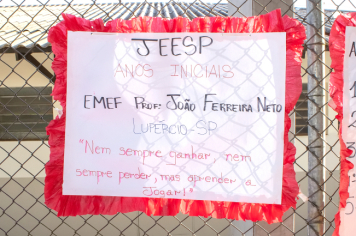 JEESP
ANOS INICIAIS
EMEF Prof: João Ferreira Neto
Lupércio-SP
"Nem sempre ganhar, nem
sempre perder, mas aprender a
Jogar!"